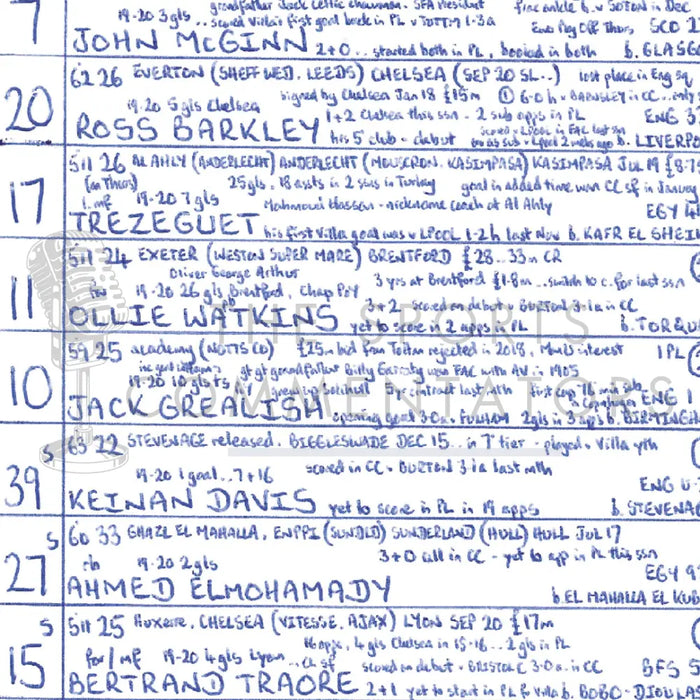 grandfather Jack Celtic chairman. SFA President fine ankle b. v SOTON in Dec
7 19-20 3 gls .. scored Villa's first goal back in PL v TOTTM 1-3 a Eng Play Off Thurs SCO 2
JOHN McGINN 2+0 .. started both in PL, booked in both b. GLASG
62 26 EVERTON (SHEFF WED. LEEDS) CHELSEA (SEP 20 SL..) lost place in Eng sq
signed by Chelsea Jan 18 £15m ① 6-0 h v BARNSLEY in CC..
20 19-20 5 gls Chelsea 1+2 Chelsea this ssn - 2 sub apps in PL ENG 3
scored v LPOOL in FAC last ssn
ROSS BARKLEY his 5th club - debut on as sub v Lpool 2 wks ago b. LIVERPO
511 26 AL AHLY (ANDERLECHT) ANDERLECHT (MOUSCRON. KASIMPASA) KASIMPASA JUL 19 £8.7
17 25 gls, 18 assts in 2 ssns in Turkey goal in added time won CC sf in January
l.mf 19-20 7 gls Mahmoud Hassan - nickname coach at Al Ahly EGY 4
TREZEGUET his first Villa goal was v LPOOL 1-2 h last Nov b. KAFR EL SHEI
511 24 EXETER (WESTON SUPER MARE) BRENTFORD £28...33m CR
Oliver George Arthur 3 yrs at Brentford £1.8m ...switch to c. for last ssn
11 for 19-20 26 gls Brentford, Chap PoY 3+2 - scored on debut v BURTON 3-1 a in CC
OLLIE WATKINS yet to score in 2 apps in PL b. TORQU
59 25 academy (NOTTS CO) £25m bid from Tottm rejected in 2018, Man U interest 1 PL
gt gt grandfather Billy Garraty won FAC with AV in 1905
10 19-20 10 gls grew up Solihull 5 yr contract last mth ENG 1
JACK GREALISH opening goal 3-0 a v FULHAM 2 gls in 3 apps b. BIRMINGH
S 63 22 STEVENAGE released. BIGGLESWADE DEC 15.. in 7th tier - played v Villa yth
39 19-20 1 goal .. 7+16 scored in CC v BURTON 3-1 a last mth ENG U
KEINAN DAVIS yet to score in PL in 19 apps b. STEVENA
S 60 33 GHAZL EL MAHALLA, ENPPI (SUNDLD) SUNDERLAND (HULL) HULL JUL 17
27 rb 19-20 2 gls 3+0 all in CC - yet to app in PL this ssn EGY 9
AHMED ELMOHAMADY b. EL MAHALLA EL KUB
S 511 25 Auxerre. CHELSEA (VITESSE. AJAX) LYON SEP 20 £17m
16 apps, 4 gls Chelsea in 15-16 .. 2 gls in PL
15 for/mf 19-20 4 gls Lyon ... CL sf scored on debut v BRISTOL C 3-0 a in CC BFS 5
BERTRAND TRAORE 2+1 yet to start in PL for Villa b. BOBO-DIOUL
THE SPORTS
COMMENTATORS